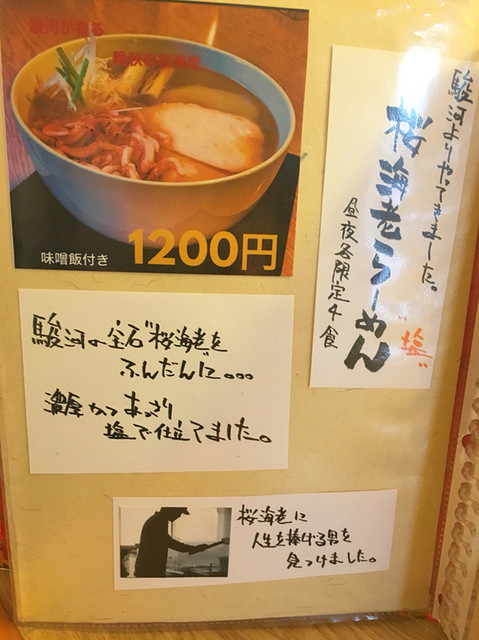 駿河が香る
味噌飯付き
1200円
駿河よりやってきました。
桜海老らーめん
"塩"
昼夜各限定4食
駿河の宝石"桜海老"を
ふんだんに。。。
濃厚かつあっさり
塩で仕立てました。
桜海老に
人生を捧げる男を
見つけました。